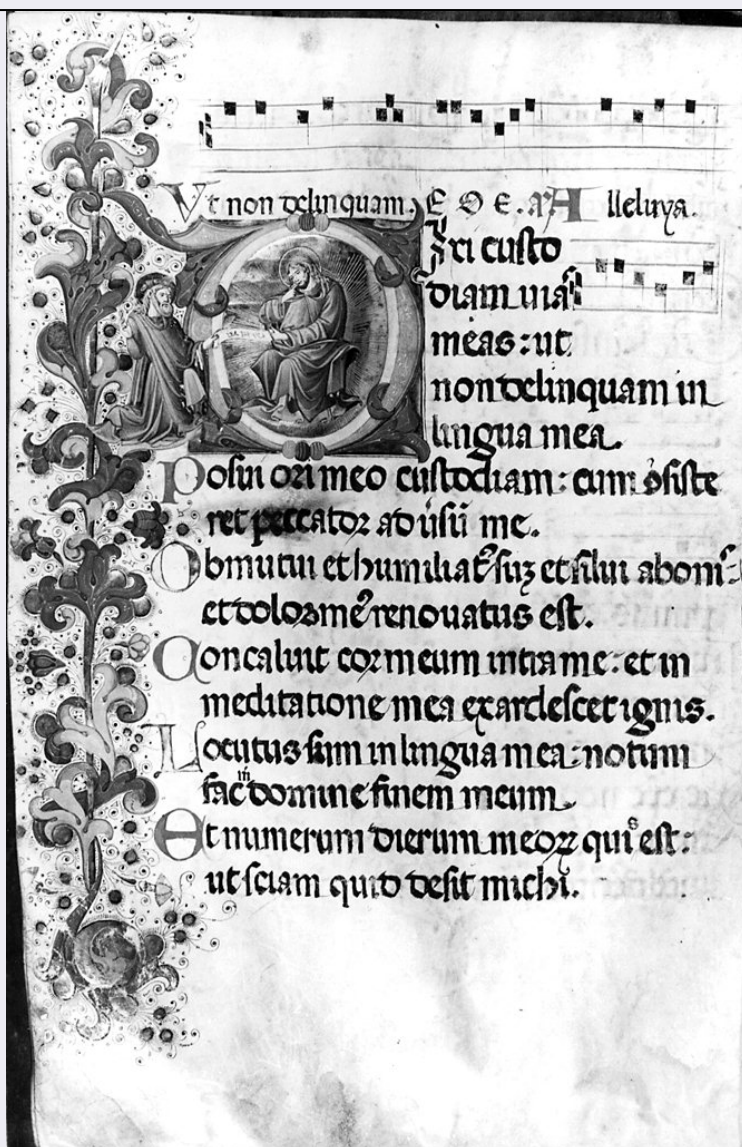 Vt non delinquam. E O E. A Alleluya.
Ixi custo
diam uias
meas: ut
non delinquam in
lingua mea.
Posui ori meo custodiam: cum ɔsiste
ret peccator aduísũ me.
Obmutui et humiliatꝰ suʒ et silui a bonis:
et dolor meꝰ renouatus est.
Concaluit cor meum intra me: et in
meditatione mea exardescet ignis.
Locutus sum in lingua mea: notum
fac m domine finem meum.
Et numerum dierum meoꝝ quis est:
ut sciam quid desit michi.